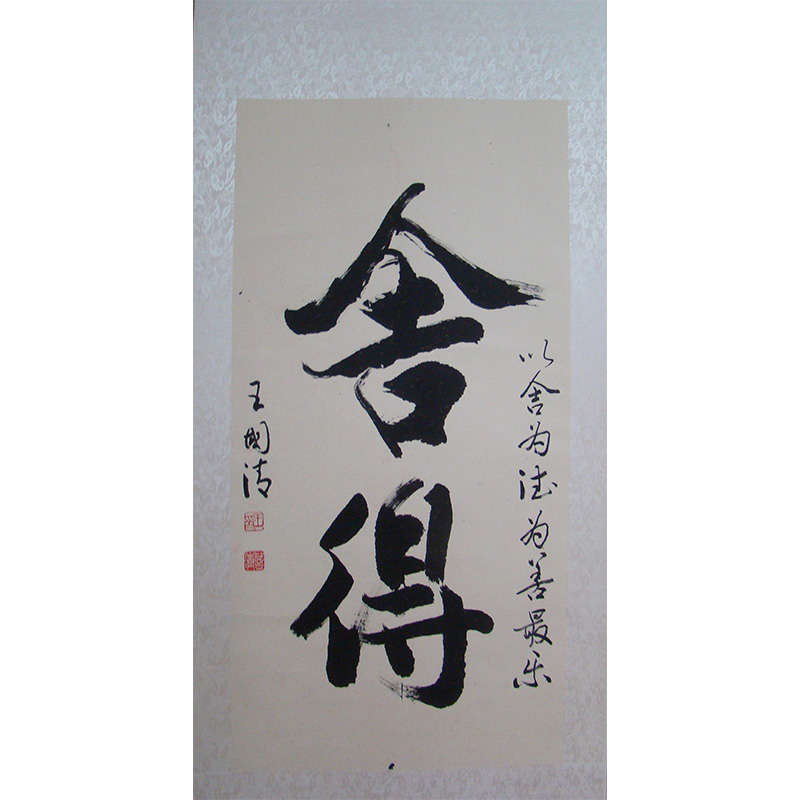 舍得
以舍为德为善最乐
王國清